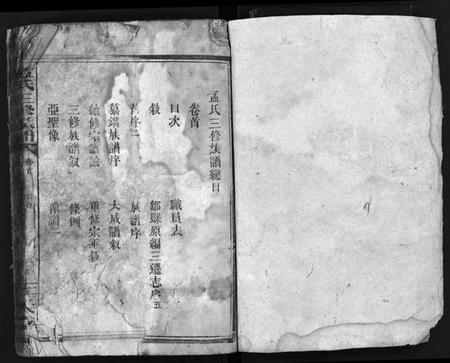 孟氏三修族譜總目
卷首
目次 職員表
敘 鄒縣原編三遷志序五
舊序二 族譜序
纂錄族譜序 大成譜敘
續修宗譜 重修宗乘敘
三修族譜敘 條例
亞聖像
孟氏三修族譜 卷首